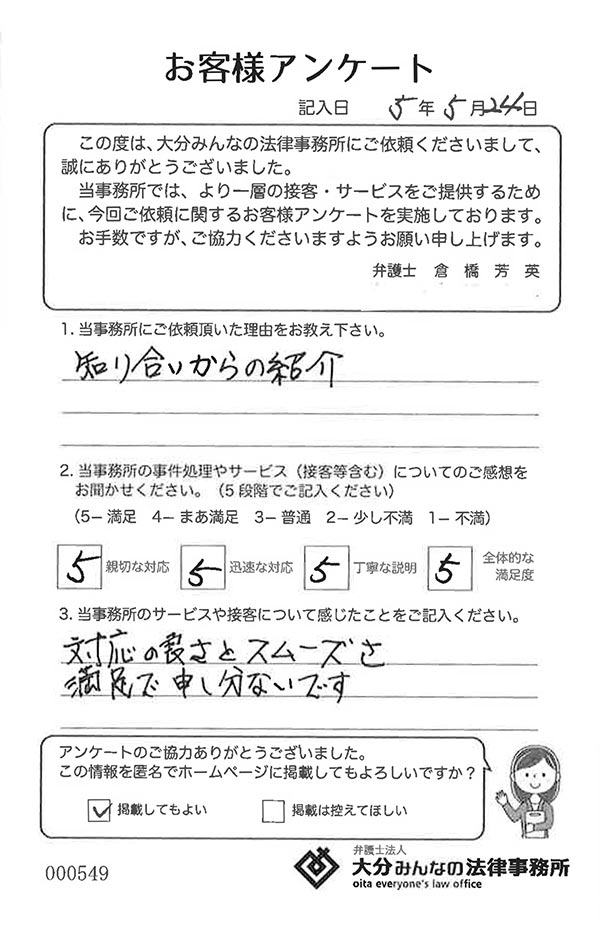 お客様アンケート
記入日 5年5月24日
この度は、大分みんなの法律事務所にご依頼くださいまして、
誠にありがとうございました。
当事務所では、より一層の接客・サービスをご提供するため
に、今回ご依頼に関するお客様アンケートを実施しております。
お手数ですが、ご協力くださいますようお願い申し上げます。
弁護士 倉橋芳英
1. 当事務所にご依頼頂いた理由をお教え下さい。
知り合いからの紹介
2. 当事務所の事件処理やサービス（接客等含む）についてのご感想を
お聞かせください。（5段階でご記入ください）
（5− 満足 4− まあ満足 3− 普通 2− 少し不満 1− 不満）
5 親切な対応 5 迅速な対応 5 丁寧な説明 5 全体的な
満足度
3. 当事務所のサービスや接客について感じたことをご記入ください。
対応の良さとスムーズさ
満足で申し分ないです
アンケートのご協力ありがとうございました。
この情報を匿名でホームページに掲載してもよろしいですか？
掲載してもよい 掲載は控えてほしい
弁護士法人
大分みんなの法律事務所
oita everyone's law office
000549